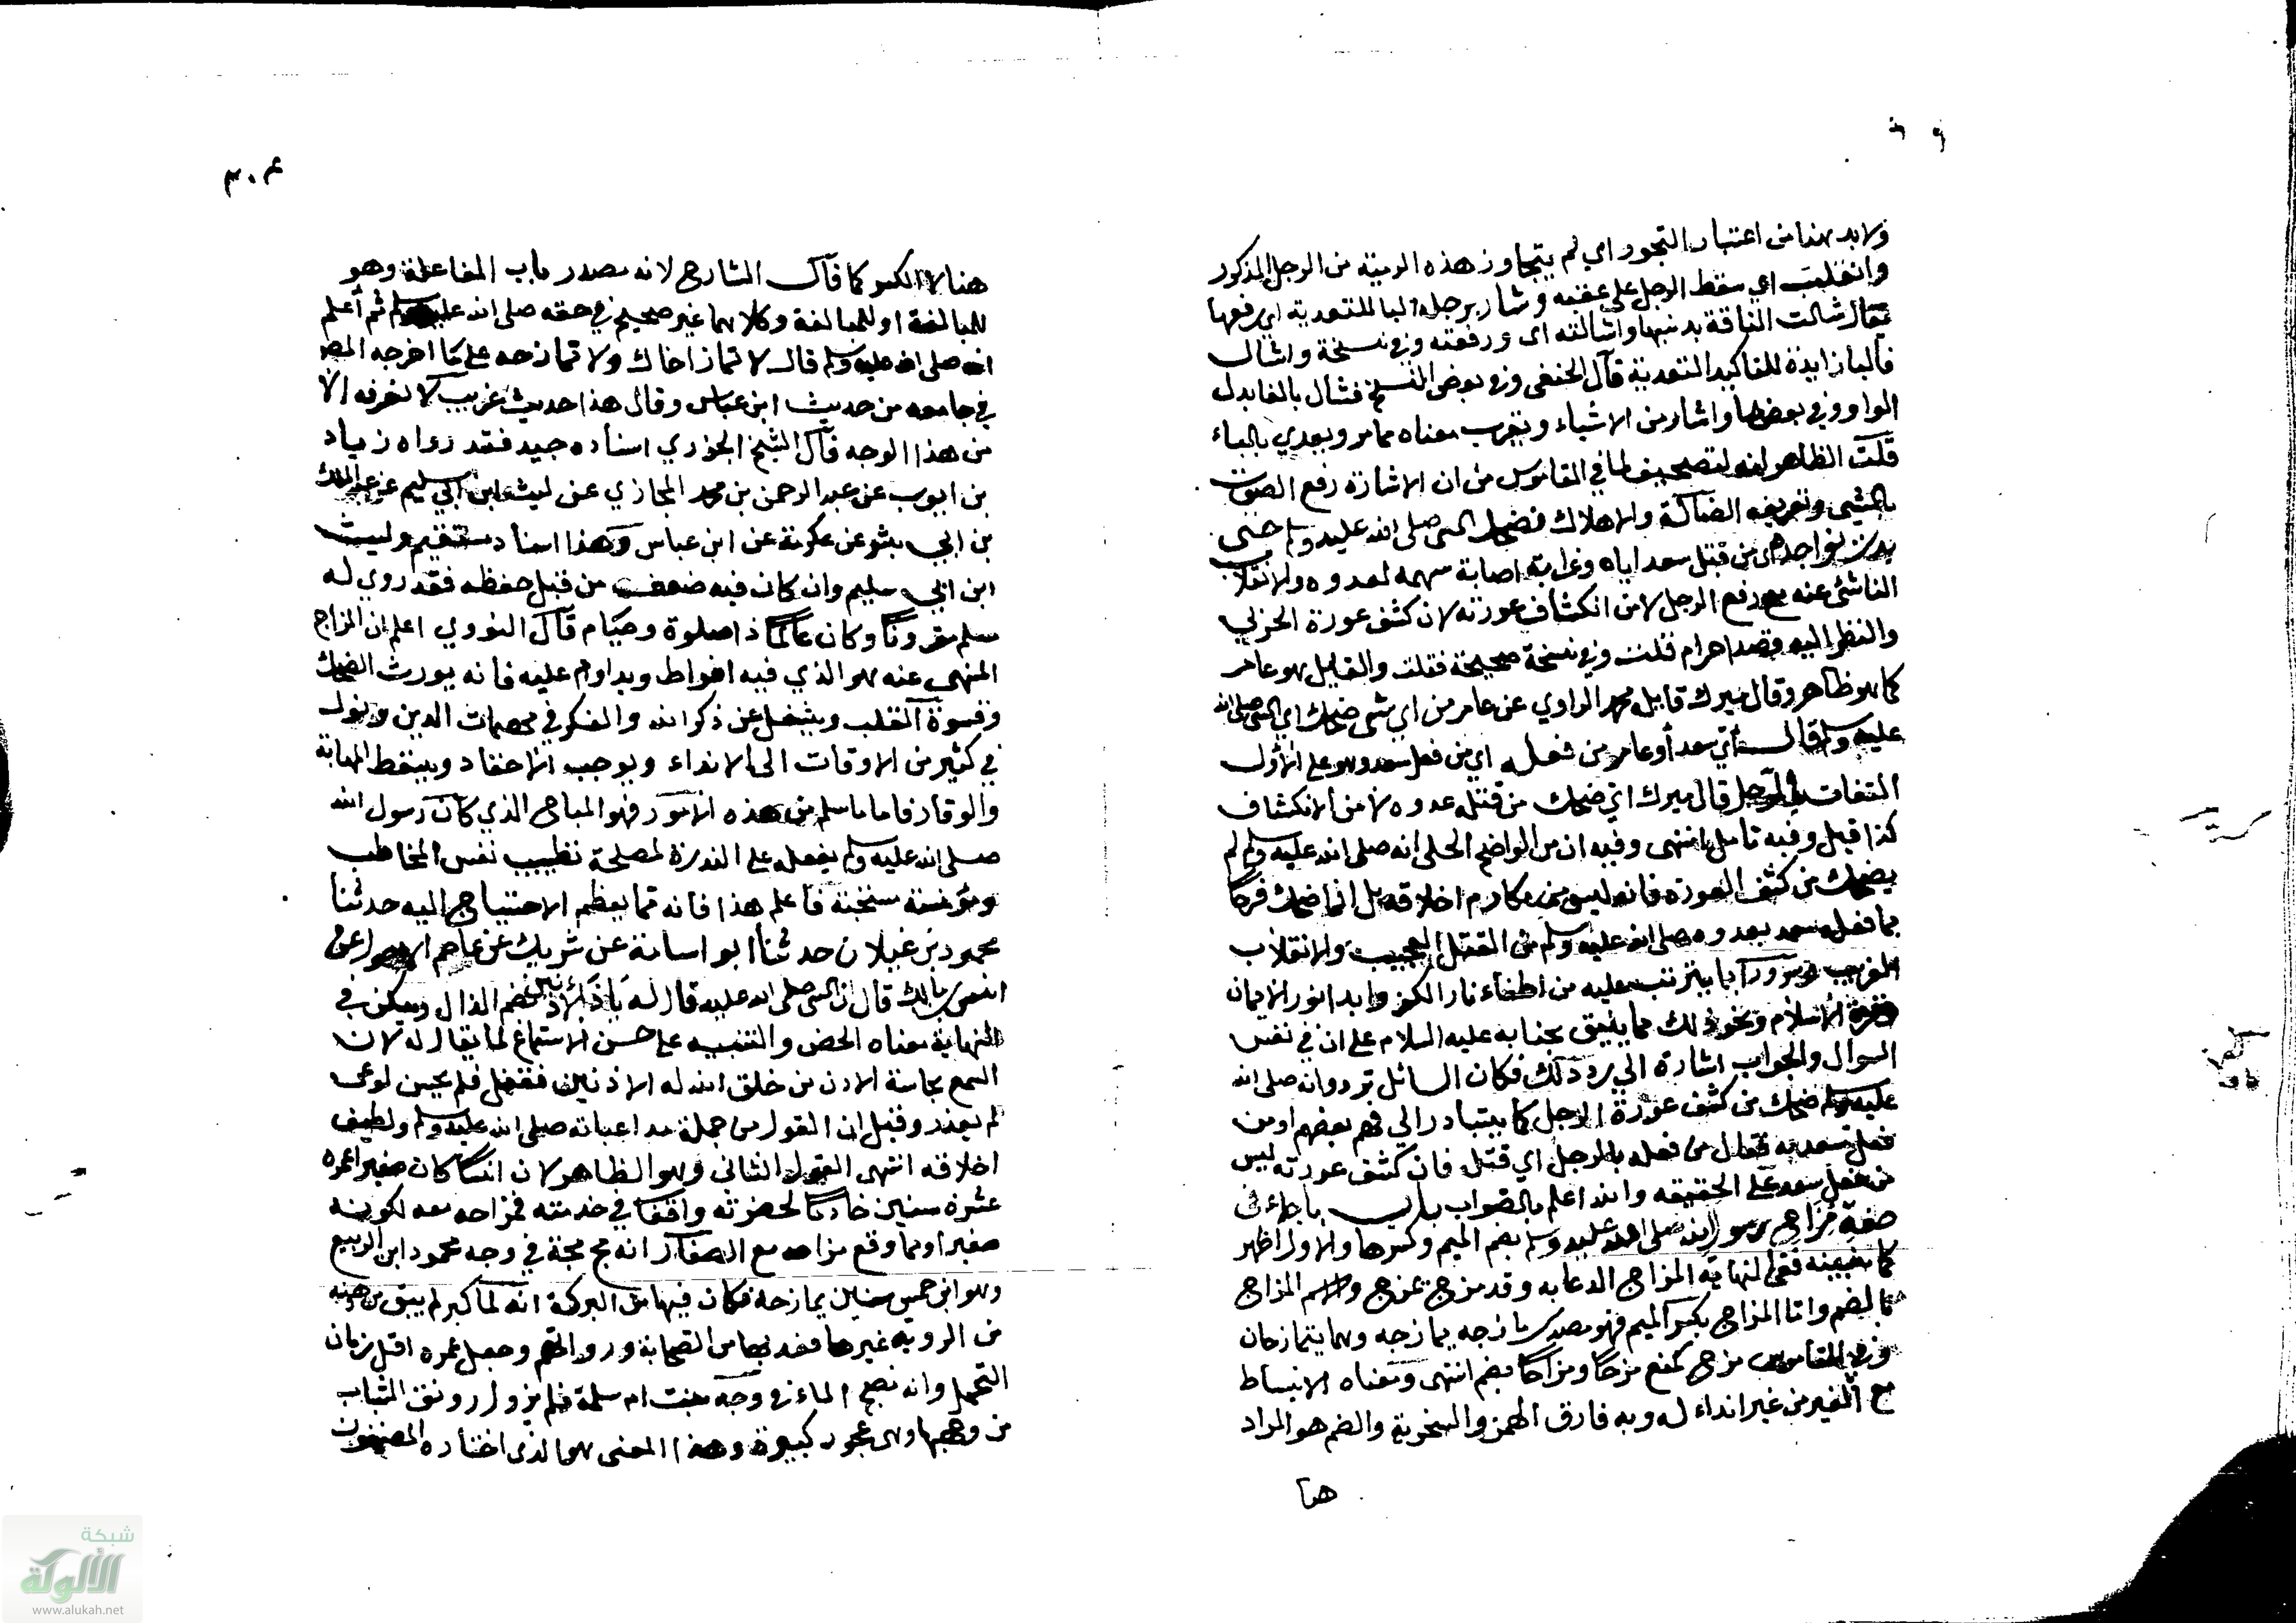 ولا بد بهذا من اعتبار التجوز اي لم يتجاوز هذه الرمية من الرجل المذكور
وانقلب اي سقط الرجل على عقبه وشال برجله البا للتعدية اي رفعها
يقال شالت الناقة بذنبها واشالته اى ورفعته وفي نسخة واشال
فالبا زايدة للتاكيد التعدية قال الحنفي وفي بعض النسخ فشال بالفا بدل
الواو وفي بعضها واشار من الاشباء ويقرب معناه ممامر ويعدي بالباء
قلت الظاهر انه تصحيف لما في القاموس من ان الاشارة رفع الصوت
بالشيء وتعريف الضالة والاهلاك فضحك النبي صلى الله عليه وسلم حتى
بدت نواجذه اي من قتل سعد اياه وغرابة اصابة سهمه لعدوه والانقلاب
الناشئ عنه مع رفع الرجل لا من انكشاف عورته لان كشف عورة الحربي
والنظر اليه قصدا حرام قلت وفي نسخة صحيحة فقلت والقايل هو عامر
كما هو ظاهر وقال ميرك قايله محمد الراوي عن عامر من اي شى ضحك اي النبي صلى الله
عليه وسلم قال اي سعد أو عامر من فعله اي من فعل سعد وهو على الاول
التفات بالرجل قال ميرك اي ضحك من قتله عدوه لا من الانكشاف
كذا قيل وفيه تامل انتهى وفيه ان من الواضح الجلى انه صلى الله عليه وسلم لم
يضحك من كشف العورة فانه ليس من مكارم اخلاقه بل انما ضحك فرحا
بما فعله سعد بعدوه صلى الله عليه وسلم من القتل العجيب والانقلاب
الغريب وسرورا بما يترتب عليه من اطفاء نار الكفر وابدا نور الايمان
وقوة الاسلام ونحو ذلك مما يليق بجنابه عليه السلام على ان في نفس
السوال والجواب اشارة الى رد ذلك فكان السائل تردد انه صلى الله
عليه وسلم ضحك من كشف عورة الرجل كما يتبادر الى فهم بعضهم او من
فعل سعد به فقال من فعله بالرجل اي قتله فان كشف عورته ليس
من فعل سعد على الحقيقه والله اعلم بالصواب باب ما جاء فى
صفة مزاح رسول الله صلى الله عليه وسلم بضم الميم وكسرها والاول اظهر
كما ففي النهاية المزاح الدعابه وقد مزح يمزح والاسم المزاح
بالضم واما المزاح بكسر الميم فهو مصدر مازحه يمازحه وهما يتمازحان
وفي القاموس مزح كمنع مزحا ومزاحا بضم انتهى ومعناه الانبساط
مع الغير من غير ايذاء له وبه فارق الهمز والسخرية والضم هو المراد
هنا
٣٠٤
هنا لا الكسر كما قال الشارح لانه مصدر باب المفاعلة وهو
للمبالغة او للمبالغة وكلاهما غير صحيح في حقه صلى الله عليه وسلم ثم أعلم
انه صلى الله عليه وسلم قال لا تمار اخاك ولا تمازحه على ما اخرجه المص
في جامعه من حديث ابن عباس وقال هذا حديث غريب لا نعرفه الا
من هذا الوجه قال الشيخ الجزري اسناده جيد فقد رواه زياد
بن ايوب عن عبد الرحمن بن محمد المحاربي عن ليث ابن ابي سليم عن عبد الملك
بن ابي بشر عن عكرمة عن ابن عباس وهذا اسناد مستقيم وليث
ابن ابي سليم وان كان فيه ضعف من قبل حفظه فقد روي له
مسلم مقرونا وكان عالما ذا صلوة وصيام قال النووي اعلم ان المزاح
المنهي عنه هو الذي فيه افراط ويداوم عليه فانه يورث الضحك
وقسوة القلب ويشغل عن ذكر الله والفكر في مهمات الدين ويؤل
في كثير من الاوقات الى الايذاء ويوجب الاحقاد ويسقط المهابة
والوقار فاما ما سلم من هذه الامور فهو المباح الذي كان رسول الله
صلى الله عليه وسلم يفعله على الندرة لمصلحة تطييب نفس المخاطب
ومؤنسته سنة فاعلم هذا فانه مما يعظم الاحتياج اليه حدثنا
محمود بن غيلان حدثنا ابو اسامة عن شريك عن عاصم الاحول عن
انس بن مالك قال ان النبي صلى الله عليه قال له يا ذا الاذنين بضم الذال ويسكن في
النهاية معناه الحض والتنبيه على حسن الاستماع لما يقال له لان
السمع بحاسة الاذن من خلق الله له الاذنين فغفل فلم يحسن لوعى
لم يعذر وقيل ان القول من جملة مداعباته صلى الله عليه وسلم ولطيف
اخلاقه انتهى القول الثانى وهو الظاهر لان انسا كان صغيرا عمره
عشرة سنين خادما لحضرته واقفا في خدمته فمزاحه معه لكونه
صغيرا ومما وقع مزاحه مع الصغار انه مج مجة في وجه محمود ابن الربيع
وهو ابن خمس سنين يمازحه فكان فيها من البركة انه لما كبر لم يبق
من الروية غيرها فعد بها من الصحابة وجعل عمره اقل زمان
التحمل وانه نضح الماء في وجه بنت ام سلمة فلم يزول رونق الشباب
من وجهها وهى عجوز كبيرة وهذا المعنى هو الذي اختاره المصنفون
شبكة
الألوكة
www.alukah.net